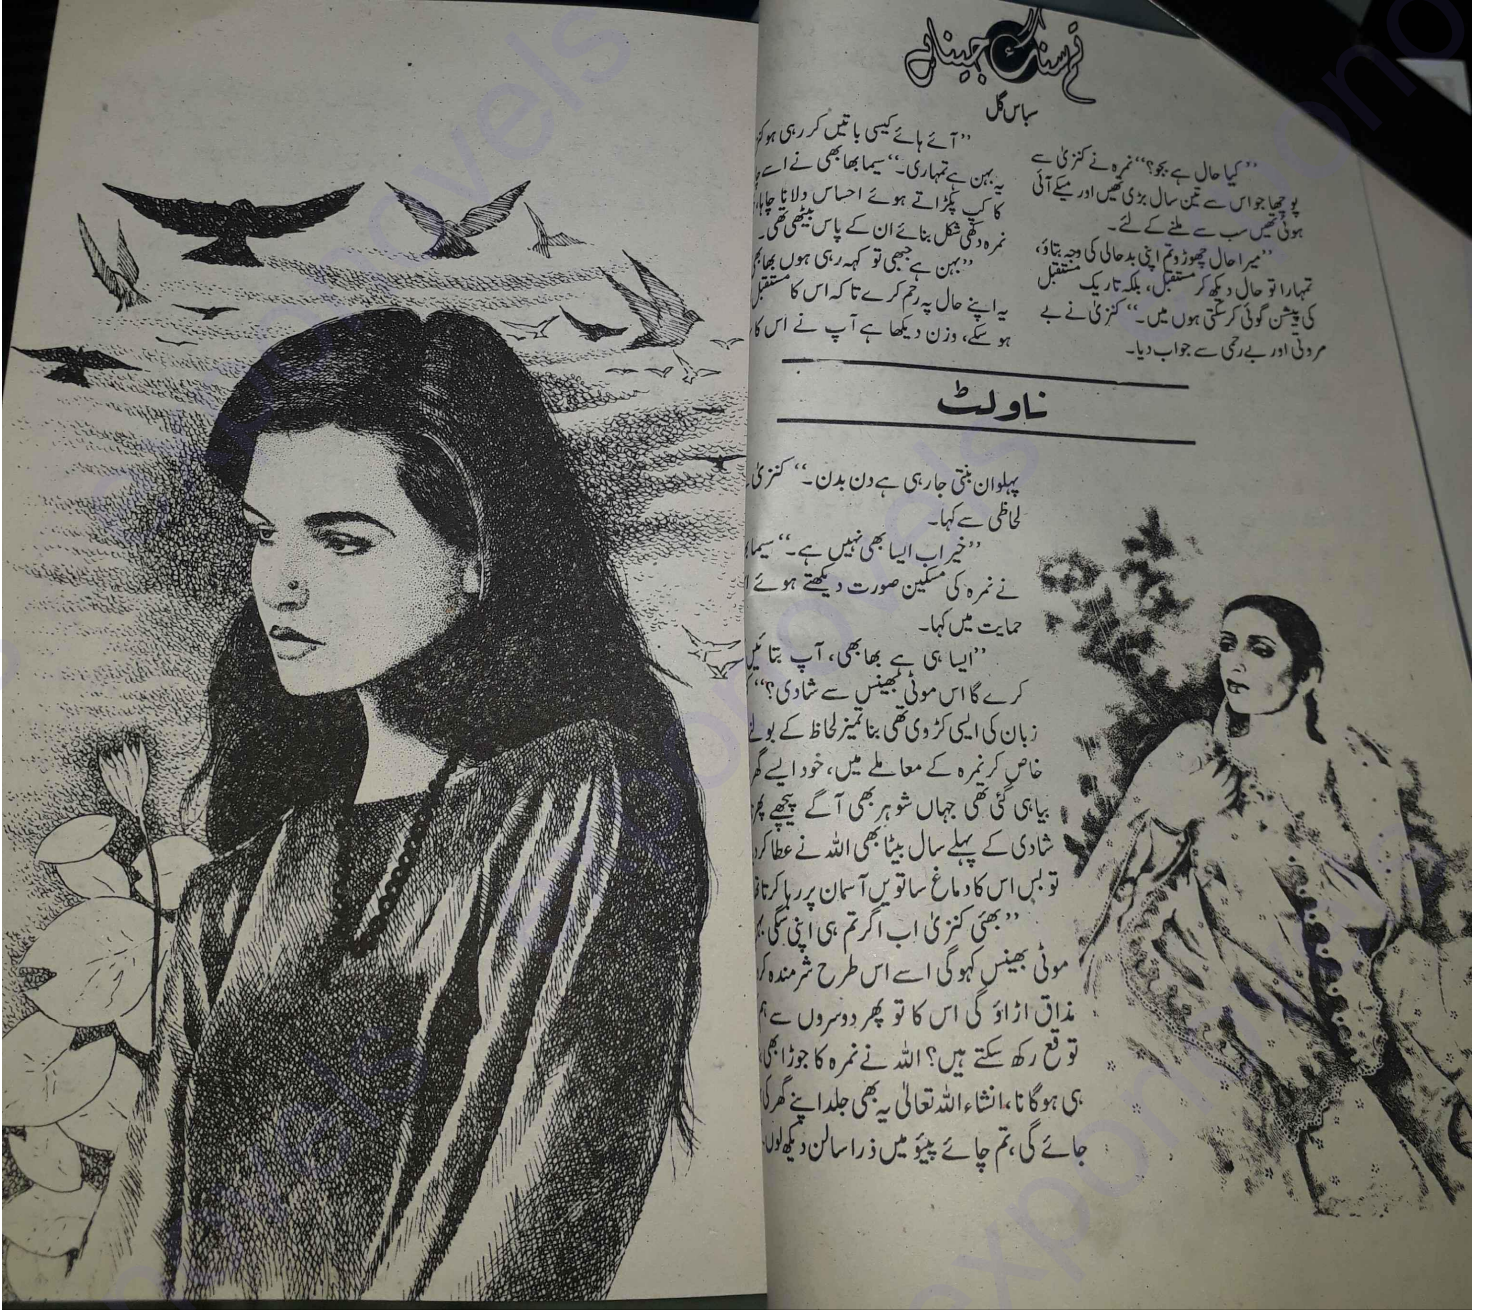 تم سنگ جینا ہے
سباس گل
’’کیا حال ہے بجو؟‘‘ نمرہ نے کنزیٰ سے
پوچھا جو اس سے تین سال بڑی تھیں اور میکے آئی
ہوئی تھیں سب سے ملنے کے لئے۔
’’میرا حال چھوڑو تم اپنی بدحالی کی وجہ بتاؤ،
تمہارا تو حال دیکھ کر مستقبل، بلکہ تاریک مستقبل
کی پیشن گوئی کر سکتی ہوں میں۔‘‘ کنزیٰ نے بے
مروتی اور بے رحمی سے جواب دیا۔
’’آئے ہائے کیسی باتیں کر رہی ہو
یہ بہن ہے تمہاری۔‘‘ سیما بھابھی نے اسے
کا کپ پکڑاتے ہوئے احساس دلانا چاہا،
نمرہ دکھی شکل بنائے ان کے پاس بیٹھی تھی۔
’’بہن ہے جبھی تو کہہ رہی ہوں
یہ اپنے حال پہ رحم کرے تاکہ اس کا مستقبل
ہو سکے، وزن دیکھا ہے آپ نے اس کا
ناولٹ
پہلوان بنتی جا رہی ہے دن بدن۔‘‘ کنزیٰ
لحاظی سے کہا۔
’’خیر اب ایسا بھی نہیں ہے۔‘‘ سیما
نے نمرہ کی مسکین صورت دیکھتے ہوئے
حمایت میں کہا۔
’’ایسا ہی ہے بھابھی، آپ بتائیں
کرے گا اس موٹی بھینس سے شادی؟‘‘
زبان کی ایسی کڑوی تھی بنا تمیز لحاظ کے
خاص کر نمرہ کے معاملے میں، خود ایسے
بیاہی گئی تھی جہاں شوہر بھی آگے پیچھے
شادی کے پہلے سال بیٹا بھی اللہ نے عطا
تو بس اس کا دماغ ساتویں آسمان پر رہا کرتا
’’بھئی کنزیٰ اب اگر تم ہی اپنی سگی
موٹی بھینس کہو گی اسے اس طرح شرمندہ
مذاق اڑاؤ گی اس کا تو پھر دوسروں سے
توقع رکھ سکتے ہیں؟ اللہ نے نمرہ کا جوڑا بھی
ہی ہوگا نا، انشاء اللہ تعالیٰ یہ بھی جلد اپنے گھر
جائے گی، تم چائے پیئو میں ذرا سالن دیکھ لوں